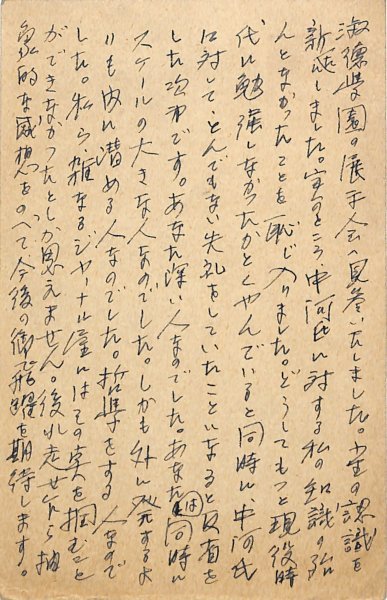 淑徳学園の展示会へ見参いたしました。少の認識を
新たにしました。実のところ、中河氏に対する私の知識の殆
んどなかったことを恥じ入りました。どうしてもっと現役時
代に勉強しなかったかとくやんでいると同時に、中河氏
に対して、とんでもない失礼をしていたことになると反省を
した次第です。あなた深い人なのでした。あなたは同時に
スケールの大きな人なのでした。しかも外に発するよ
りも内に潜める人なのでした。哲学をする人なので
した。私ら、雑なるジャーナル屋にはその実を掴むこと
ができなかったとしか思えません。後れ走せ乍ら抽
象的な感想をのべて今後の御活躍を期待します。